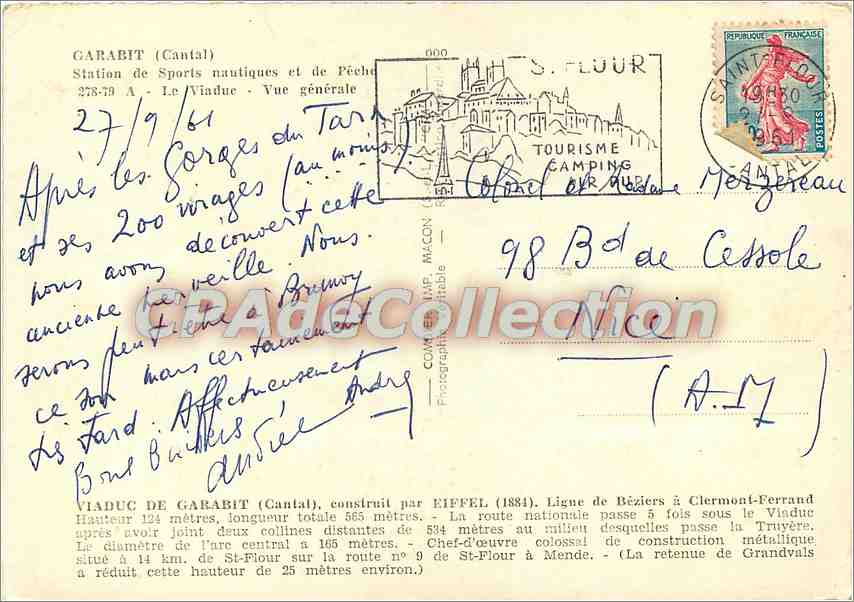 GARABIT (Cantal)
Station de Sports nautiques et de Pêche
278-79 A - Le Viaduc - Vue générale
000
ST FLOUR
TOURISME
CAMPING
AIR PUR
REPUBLIQUE FRANÇAISE
POSTES
SAINT-FLOUR
19H30
1961
CANTAL
27/9/61
Après les Gorges du Tarn
et ses 200 virages (au moins)
nous avons découvert cette
ancienne merveille. Nous
serons peut être à Brunoy
ce soir mais certainement
très tard. Affectueusement
André
Bons baisers
Colonel et Madame Merzereau
98 Bd de Cessole
Nice
(A.M)
COMBIER IMP. MACON
Photographie véritable
CPAdeCollection
VIADUC DE GARABIT (Cantal), construit par EIFFEL (1884). Ligne de Béziers à Clermont-Ferrand
Hauteur 124 mètres, longueur totale 565 mètres. - La route nationale passe 5 fois sous le Viaduc
après avoir joint deux collines distantes de 534 mètres au milieu desquelles passe la Truyère.
Le diamètre de l'arc central a 165 mètres. - Chef-d'œuvre colossal de construction métallique
situé à 14 km. de St-Flour sur la route n° 9 de St-Flour à Mende. - (La retenue de Grandvals
a réduit cette hauteur de 25 mètres environ.)